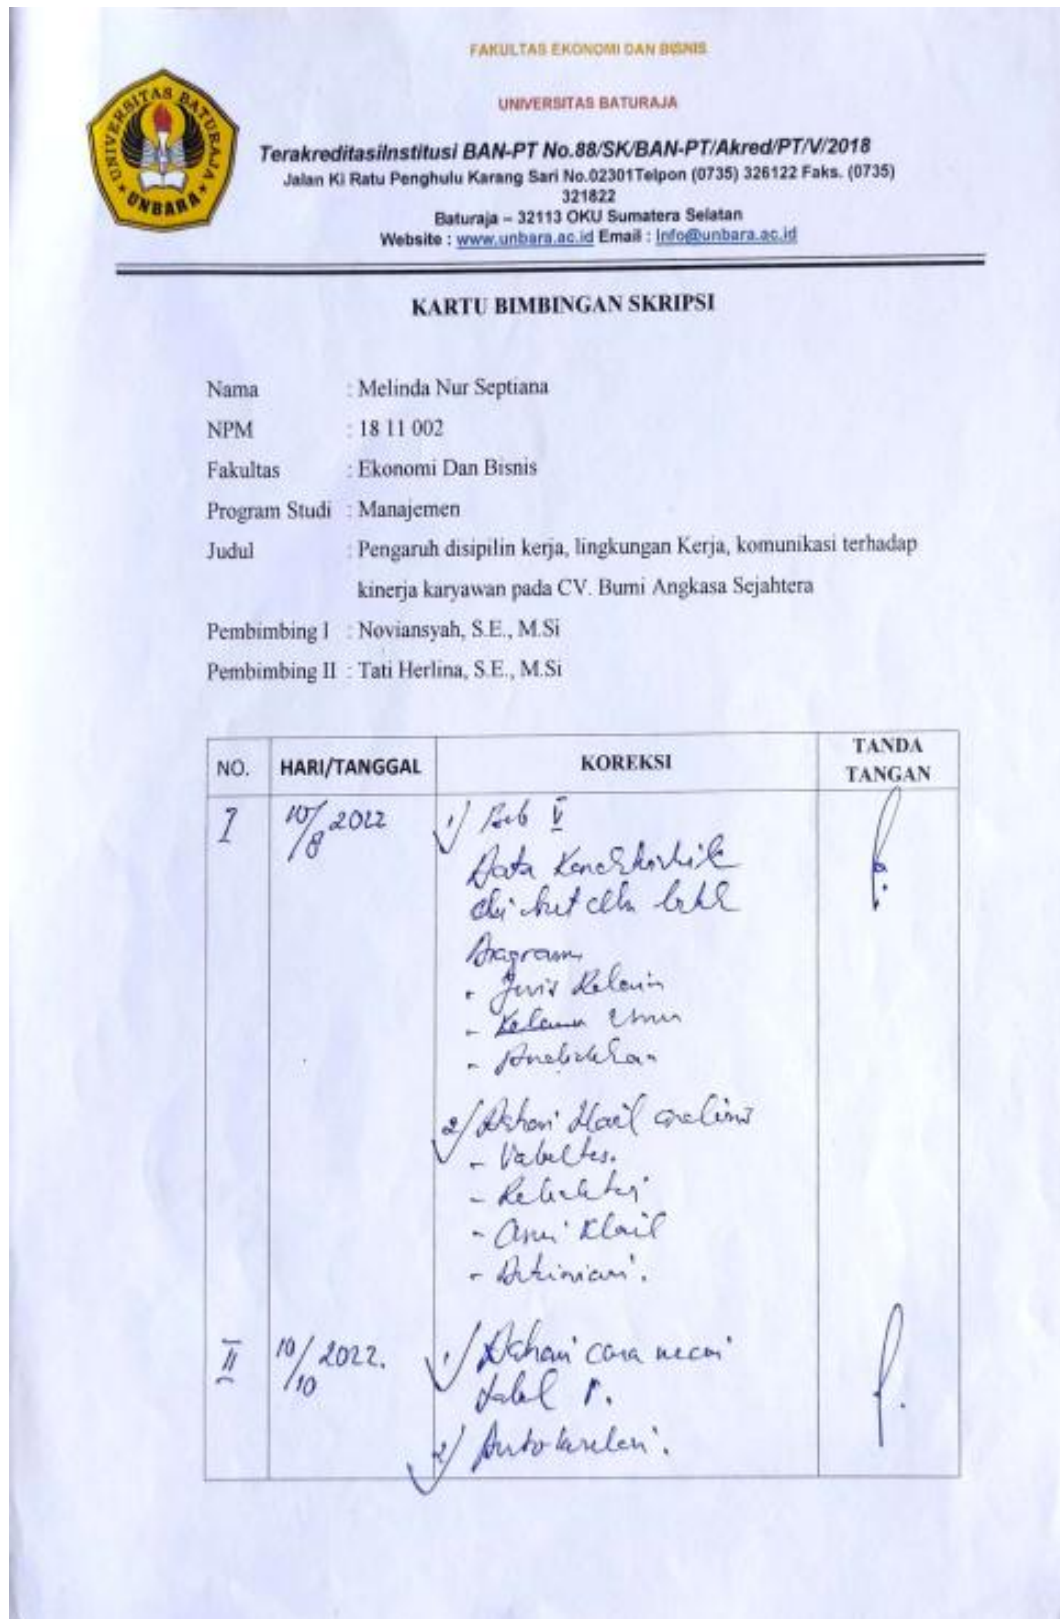 FAKULTAS EKONOMI DAN BISNIS
UNIVERSITAS BATURAJA
UNIVERSITAS BATURAJA
UNBARA
TerakreditasiInstitusi BAN-PT No.88/SK/BAN-PT/Akred/PT/V/2018
Jalan Ki Ratu Penghulu Karang Sari No.02301Telpon (0735) 326122 Faks. (0735)
321822
Baturaja – 32113 OKU Sumatera Selatan
Website : www.unbara.ac.id Email : Info@unbara.ac.id
KARTU BIMBINGAN SKRIPSI
Nama : Melinda Nur Septiana
NPM : 18 11 002
Fakultas : Ekonomi Dan Bisnis
Program Studi : Manajemen
Judul : Pengaruh disipilin kerja, lingkungan Kerja, komunikasi terhadap
kinerja karyawan pada CV. Bumi Angkasa Sejahtera
Pembimbing I : Noviansyah, S.E., M.Si
Pembimbing II : Tati Herlina, S.E., M.Si
NO. HARI/TANGGAL KOREKSI TANDA
TANGAN
I 10/8 2022 1/ Bab V
Data
Diagram
- Jenis Kelamin
- Umur
- Pendidikan
2/ Hasil
- Validitas.
- Reliabilitas
- Klasik
II 10/10 2022. 1/ cara
tabel r.
2/ Autokorelasi.